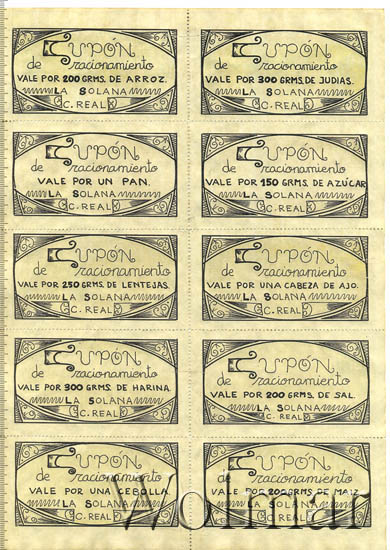 Cupón Cupón
de racionamiento de racionamiento
VALE POR 200 GRMS. DE ARROZ. VALE POR 300 GRMS. DE JUDIAS.
LA SOLANA LA SOLANA
C. REAL C. REAL
Cupón Cupón
de racionamiento de racionamiento
VALE POR UN PAN. VALE POR 150 GRMS. DE AZÚCAR
LA SOLANA LA SOLANA
C. REAL C. REAL
Cupón Cupón
de racionamiento de racionamiento
VALE POR 250 GRMS. DE LENTEJAS. VALE POR UNA CABEZA DE AJO.
LA SOLANA LA SOLANA
C. REAL C. REAL
Cupón Cupón
de racionamiento de racionamiento
VALE POR 300 GRMS. DE HARINA. VALE POR 200 GRMS. DE SAL.
LA SOLANA LA SOLANA
C. REAL C. REAL
Cupón Cupón
de racionamiento de racionamiento
VALE POR UNA CEBOLLA. VALE POR 200 GRMS. DE MAIZ.
LA SOLANA LA SOLANA
C. REAL C. REAL
Wolmar